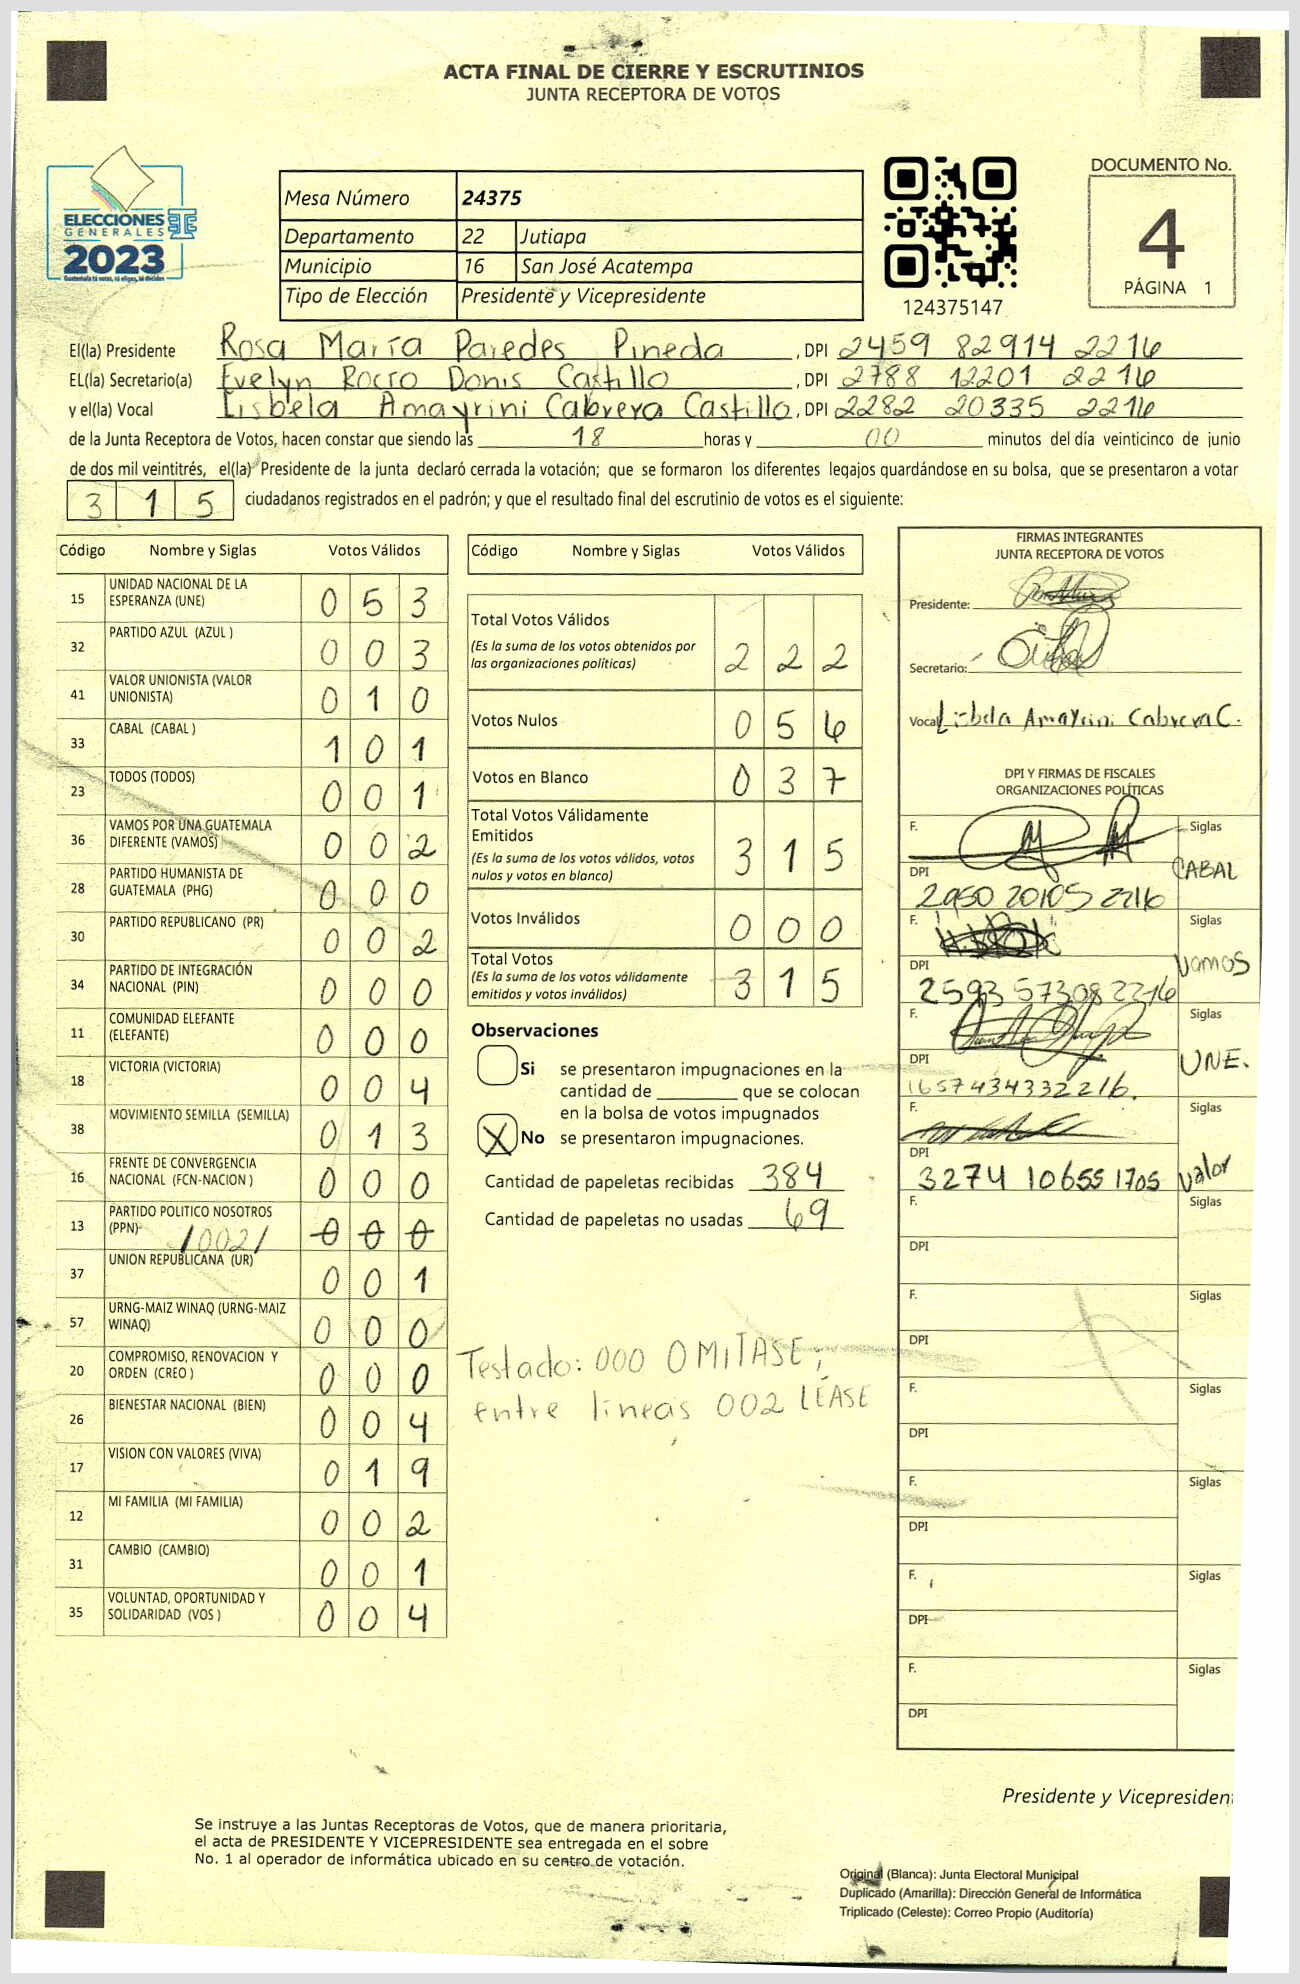 ACTA FINAL DE CIERRE Y ESCRUTINIOS
JUNTA RECEPTORA DE VOTOS
ELECCIONES
GENERALES
2023
Guatemala tú votas, tú eliges, tú decides
Mesa Número 24375
Departamento 22 Jutiapa
Municipio 16 San José Acatempa
Tipo de Elección Presidente y Vicepresidente
124375147
DOCUMENTO No.
4
PÁGINA 1
El(la) Presidente Rosa María Paredes Pineda, DPI 2459 82914 2216
EL(la) Secretario(a) Evelyn Rocío Donis Castillo, DPI 2788 12201 2216
y el(la) Vocal Lisbela Amayrini Cabrera Castillo, DPI 2282 20335 2216
de la Junta Receptora de Votos, hacen constar que siendo las 18 horas y 00 minutos del día veinticinco de junio
de dos mil veintitrés, el(la) Presidente de la junta declaró cerrada la votación; que se formaron los diferentes legajos quardándose en su bolsa, que se presentaron a votar
3 1 5 ciudadanos registrados en el padrón; y que el resultado final del escrutinio de votos es el siguiente:
Código Nombre y Siglas Votos Válidos
15 UNIDAD NACIONAL DE LA ESPERANZA (UNE) 0 5 3
32 PARTIDO AZUL (AZUL ) 0 0 3
41 VALOR UNIONISTA (VALOR UNIONISTA) 0 1 0
33 CABAL (CABAL ) 1 0 1
23 TODOS (TODOS) 0 0 1
36 VAMOS POR UNA GUATEMALA DIFERENTE (VAMOS) 0 0 2
28 PARTIDO HUMANISTA DE GUATEMALA (PHG) 0 0 0
30 PARTIDO REPUBLICANO (PR) 0 0 2
34 PARTIDO DE INTEGRACIÓN NACIONAL (PIN) 0 0 0
11 COMUNIDAD ELEFANTE (ELEFANTE) 0 0 0
18 VICTORIA (VICTORIA) 0 0 4
38 MOVIMIENTO SEMILLA (SEMILLA) 0 1 3
16 FRENTE DE CONVERGENCIA NACIONAL (FCN-NACION ) 0 0 0
13 PARTIDO POLITICO NOSOTROS (PPN) /002/ 0 0 0
37 UNION REPUBLICANA (UR) 0 0 1
57 URNG-MAIZ WINAQ (URNG-MAIZ WINAQ) 0 0 0
20 COMPROMISO, RENOVACION Y ORDEN (CREO ) 0 0 0
26 BIENESTAR NACIONAL (BIEN) 0 0 4
17 VISION CON VALORES (VIVA) 0 1 9
12 MI FAMILIA (MI FAMILIA) 0 0 2
31 CAMBIO (CAMBIO) 0 0 1
35 VOLUNTAD, OPORTUNIDAD Y SOLIDARIDAD (VOS ) 0 0 4
Código Nombre y Siglas Votos Válidos
Total Votos Válidos
(Es la suma de los votos obtenidos por
las organizaciones políticas) 2 2 2
Votos Nulos 0 5 6
Votos en Blanco 0 3 7
Total Votos Válidamente
Emitidos
(Es la suma de los votos válidos, votos
nulos y votos en blanco) 3 1 5
Votos Inválidos 0 0 0
Total Votos
(Es la suma de los votos válidamente
emitidos y votos inválidos) 3 1 5
Observaciones
Si se presentaron impugnaciones en la
cantidad de ________ que se colocan
en la bolsa de votos impugnados
X No se presentaron impugnaciones.
Cantidad de papeletas recibidas 384
Cantidad de papeletas no usadas 69
Testado: 000 OMITASE;
entre líneas 002 LEASE
FIRMAS INTEGRANTES
JUNTA RECEPTORA DE VOTOS
Presidente:
Secretario:
Vocal Lisbela Amayrini Cabrera C.
DPI Y FIRMAS DE FISCALES
ORGANIZACIONES POLÍTICAS
F. Siglas
DPI CABAL
2950 20105 2216
F. Siglas
DPI Vamos
2593 57308 2216
F. Siglas
DPI UNE.
1657434332216.
F. Siglas
DPI
3274 10655 1705 Valor
F. Siglas
DPI
F. Siglas
DPI
F. Siglas
DPI
F. Siglas
DPI
F. Siglas
DPI
F. Siglas
DPI
Presidente y Vicepresident
Se instruye a las Juntas Receptoras de Votos, que de manera prioritaria,
el acta de PRESIDENTE Y VICEPRESIDENTE sea entregada en el sobre
No. 1 al operador de informática ubicado en su centro de votación.
Original (Blanca): Junta Electoral Municipal
Duplicado (Amarilla): Dirección General de Informática
Triplicado (Celeste): Correo Propio (Auditoría)